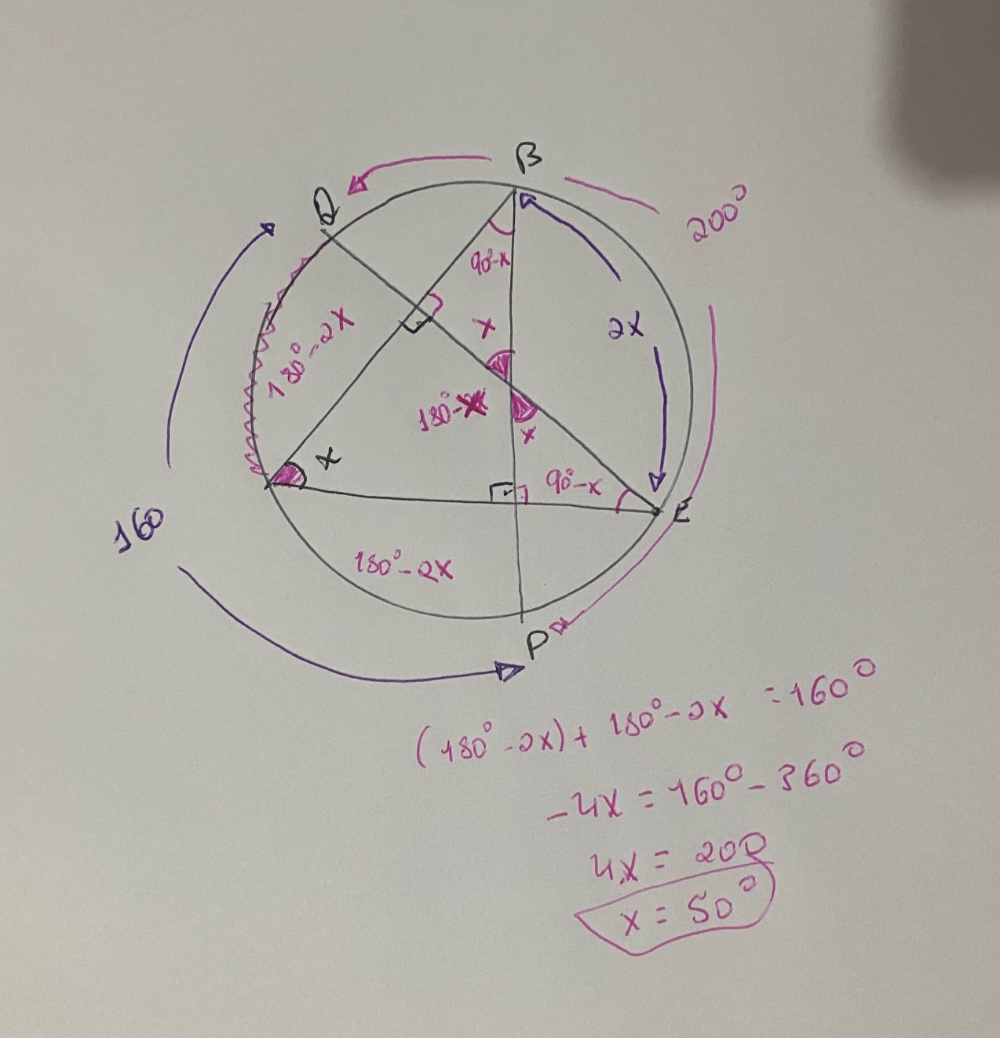 B
Q
200°
90°-x
x
2x
180°-2x
180°-
x
x
90°-x
E
160
180°-2x
P
(180°-2x)+ 180°-2x = 160°
-4x = 160°- 360°
4x = 200
x = 50°